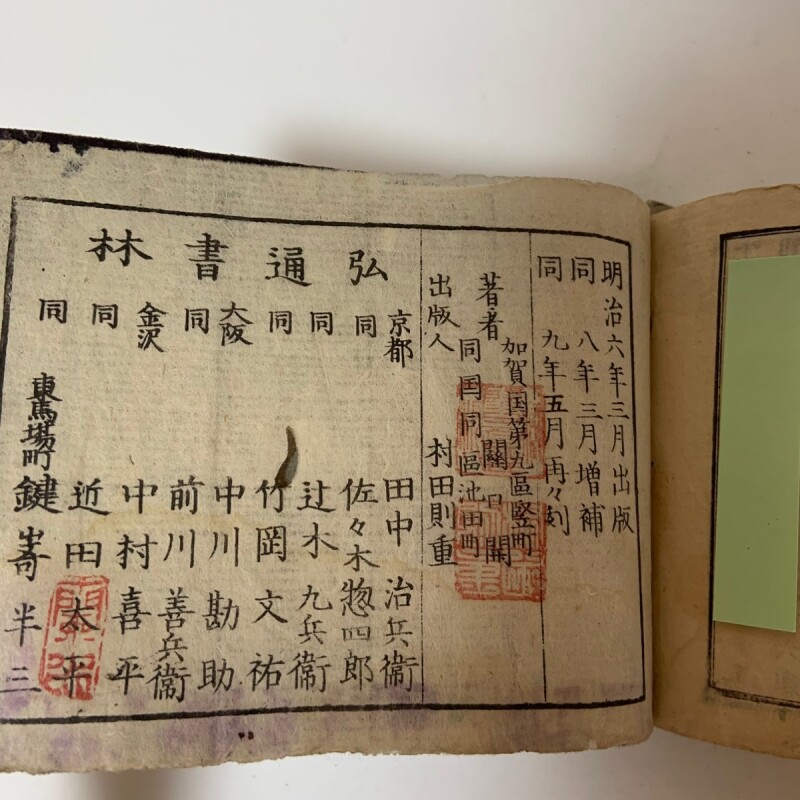 明治六年三月出版
同 八年三月増補
同 九年五月再々刻
加賀国第九區竪町
著者 關口開
同国同區池田町
出版人 村田則重
弘通書林
京都 田中治兵衞
同 佐々木惣四郎
同 辻木九兵衞
同 竹岡文祐
大阪 中川勘助
同 前川善兵衞
金沢 中村喜平
同 近田太平
同 東馬場町 鍵嵜半三